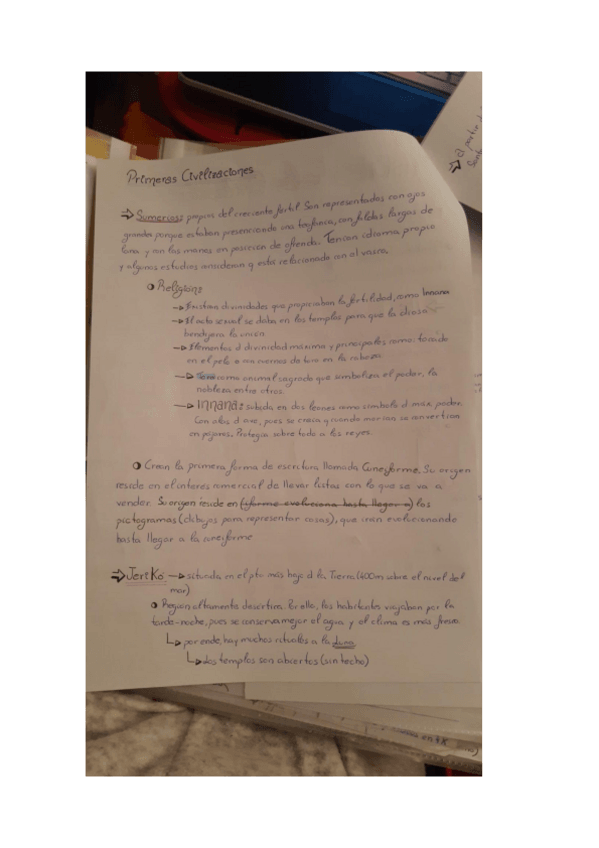 Primeras Civilizaciones
⇒ Sumerios: propios del creciente fertil. Son representados con ojos
grandes porque estaban presenciando una teofanía, con faldas largas de
lana y con las manos en posicion de ofrenda. Tenían idioma propio
y algunos estudios consideran q está relacionado con el vasco.
Religión:
→ Existían divinidades que propiciaban la fertilidad, como Innana
→ El acto sexual se daba en los templos para que la diosa
bendijera la unión
→ Elementos d divinidad máxima y principales como: tocado
en el pelo o con cuernos de toro en la cabeza
→ Toro como animal sagrado que simboliza el poder, la
nobleza entre otros.
→ Innana: subida en dos leones como símbolo d max. poder.
Con alas d ave, pues se creía q cuando morían se convertían
en pájaros. Protegía sobre todo a los reyes.
Crean la primera forma de escritura llamada Cuneiforme. Su origen
reside en el interes comercial de llevar listas con lo que se va a
vender. Su origen reside en (iforme evoluciona hasta llegar a) los
pictogramas (dibujos para representar cosas), que irían evolucionando
hasta llegar a la cuneiforme
⇒ Jericó → situada en el pto más bajo d la Tierra (400m sobre el nivel del
mar)
Región altamente desértica. Por ello, los habitantes viajaban por la
tarde-noche, pues se conserva mejor el agua y el clima es más fresco
↳ por ende, hay muchos rituales a la luna
↳ los templos son abiertos (sin techo)
el partir d